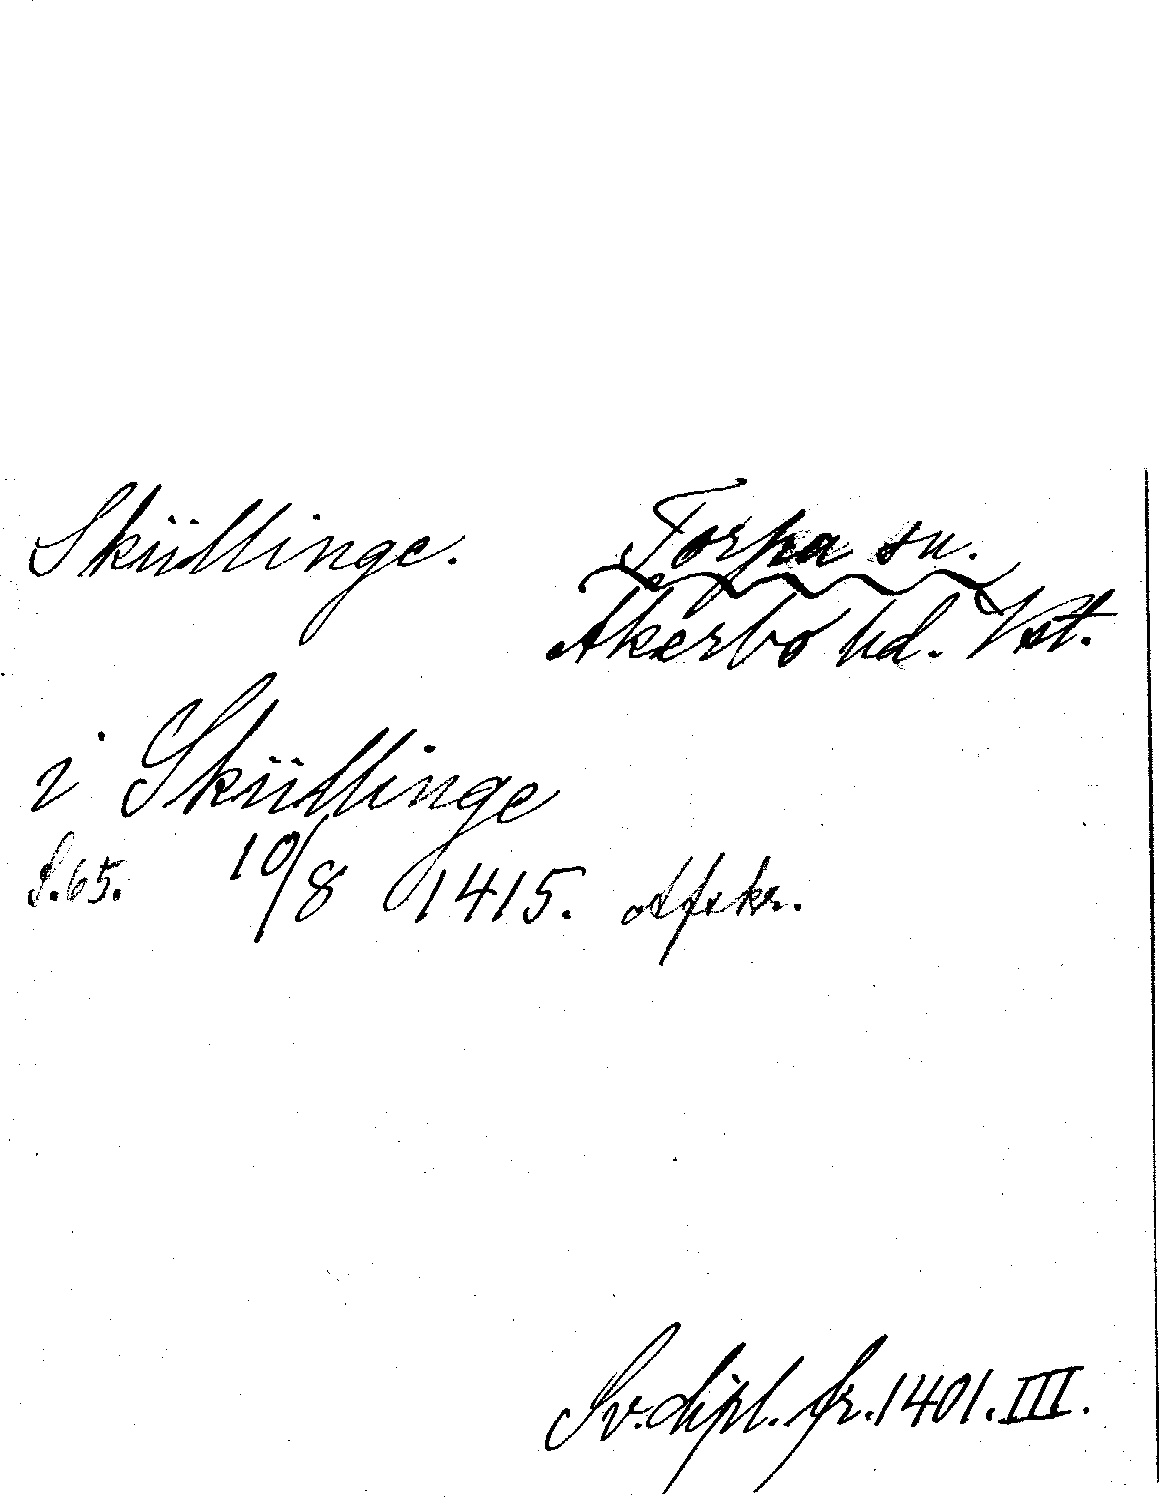 Sküllinge. Torpa sn.
Åkerbo hd. Vst.
i Sküllinge
S. 65. 10/8 1415. Afskr.
Sv. dipl. fr. 1401. III.